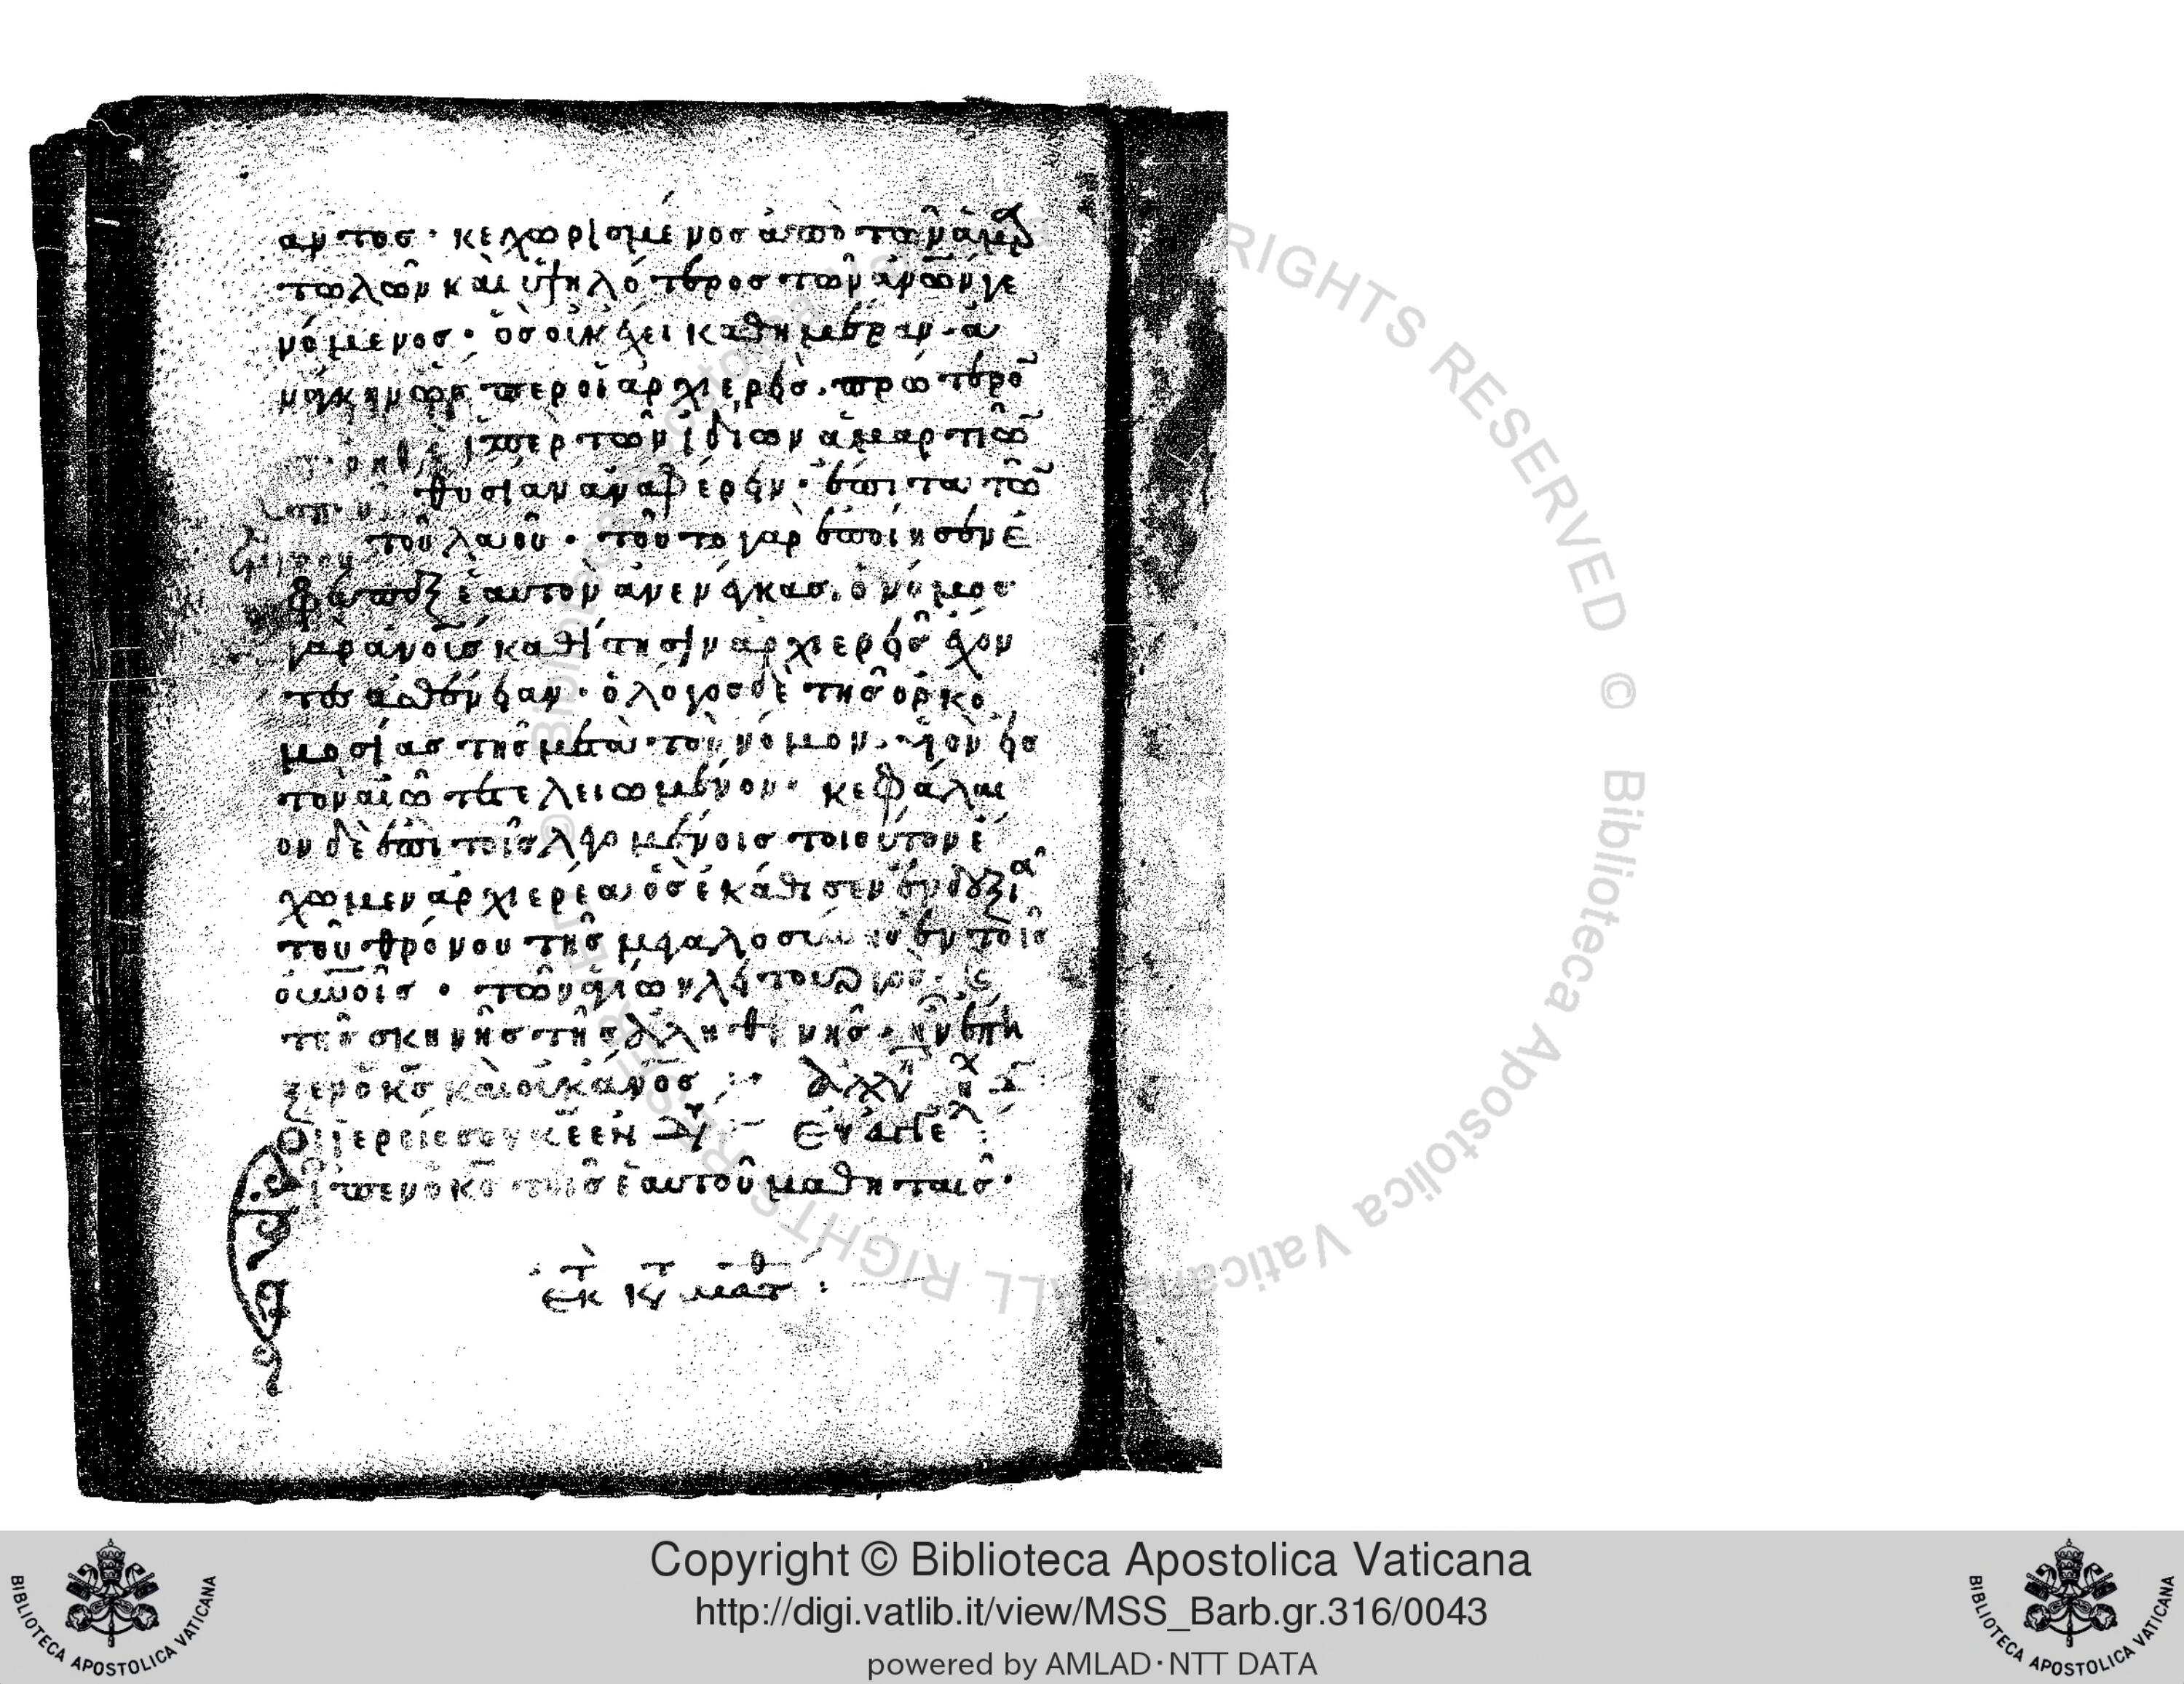 αντος · κεχωρισμένος ἀπὸ τῶν ἁμαρ
τωλῶν καὶ ὑψηλότερος τῶν οὐνῶν γε
νόμενος · ὃς οὐκ ἔχει καθημέραν ἀ
νάγκην ὥσπερ οἱ ἀρχιερεῖς · πρότερο
ὑπὲρ τῶν ἰδίων ἁμαρτιῶ
θυσίαν ἀναφέρειν · ἔπειτα τῶ
τοῦ λαοῦ · τοῦτο γὰρ ἐποίησεν ἐ
φάπαξ ἑαυτὸν ἀνενέγκας · ὁ νόμος
γὰρ ἀνοις καθίστησιν ἀρχιερεῖς ἔχον
τας ἀσθένειαν · ὁ λόγος δὲ τῆς ὁρκο
μοσίας τῆς μετὰ τὸν νόμον · υἱὸν εἰς
τὸν αἰῶ τετελειωμένον · κεφάλαι
ον δὲ ἐπὶ τοῖς λεγομένοις τοιοῦτον ἔ
χωμεν ἀρχιερέα ὃς ἐκάθισεν ἐν δεξιᾶ
τοῦ θρόνου τῆς μεγαλοσύνης ἐν τοῖς
οὐνοῖς · τῶν ἁγίων λειτουργὸς · κ
τῆς σκηνῆς τῆς ἀληθινῆς · ἣν ἔπη
ξεν ὁ κς καὶ οὐκ ἄνος :
Εἶπεν ὁ κς τοῖς ἑαυτοῦ μαθηταῖς ·
ἐκ τ κτ ματθ :
ALL RIGHTS RESERVED © Biblioteca Apostolica Vaticana
Copyright © Biblioteca Apostolica Vaticana
http://digi.vatlib.it/view/MSS_Barb.gr.316/0043
powered by AMLAD·NTT DATA
BIBLIOTECA APOSTOLICA VATICANA
BIBLIOTECA APOSTOLICA VATICANA